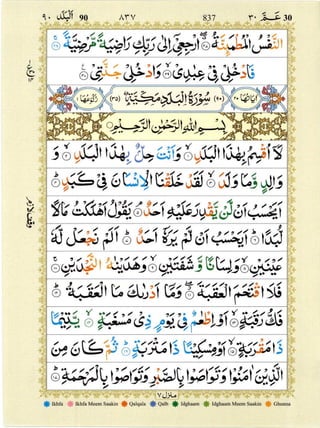 ٩٠ البلد 90 ٨٣٧ 837 ٣٠ عم 30
النَّفْسُ الْمُطْمَئِنَّةُ ارْجِعِىْۤ اِلٰى رَبِّكِ رَاضِيَةً مَّرْضِيَّةً
فَادْخُلِىْ فِىْ عِبٰدِىْ وَادْخُلِىْ جَنَّتِىْ
اٰيَاتُهَا ٢٠ (٩٠) سُوْرَةُ الْبَلَدِ مَكِّيَّةٌ (٣٥) رُكُوْعُهَا ١
بِسْمِ اللهِ الرَّحْمٰنِ الرَّحِيْمِ
لَاۤ اُقْسِمُ بِهٰذَا الْبَلَدِ وَاَنْتَ حِلٌّۢ بِهٰذَا الْبَلَدِ
وَوَالِدٍ وَّمَا وَلَدَ لَقَدْ خَلَقْنَا الْاِنْسَانَ فِىْ كَبَدٍ
اَيَحْسَبُ اَنْ لَّنْ يَّقْدِرَ عَلَيْهِ اَحَدٌ يَقُوْلُ اَهْلَكْتُ مَالًا
لُّبَدًا اَيَحْسَبُ اَنْ لَّمْ يَرَهٗۤ اَحَدٌ اَلَمْ نَجْعَلْ لَّهٗ
عَيْنَيْنِ وَلِسَانًا وَّشَفَتَيْنِ وَهَدَيْنٰهُ النَّجْدَيْنِ
فَلَا اقْتَحَمَ الْعَقَبَةَ وَمَاۤ اَدْرٰىكَ مَا الْعَقَبَةُ
فَكُّ رَقَبَةٍ اَوْ اِطْعٰمٌ فِىْ يَوْمٍ ذِىْ مَسْغَبَةٍ يَّتِيْمًا
ذَا مَقْرَبَةٍ اَوْ مِسْكِيْنًا ذَا مَتْرَبَةٍ ثُمَّ كَانَ مِنَ
الَّذِيْنَ اٰمَنُوْا وَتَوَاصَوْا بِالصَّبْرِ وَتَوَاصَوْا بِالْمَرْحَمَةِ
منزل ٧
Ikhfa Ikhfa Meem Saakin Qalqala Qalb Idghaam Idghaam Meem Saakin Ghunna